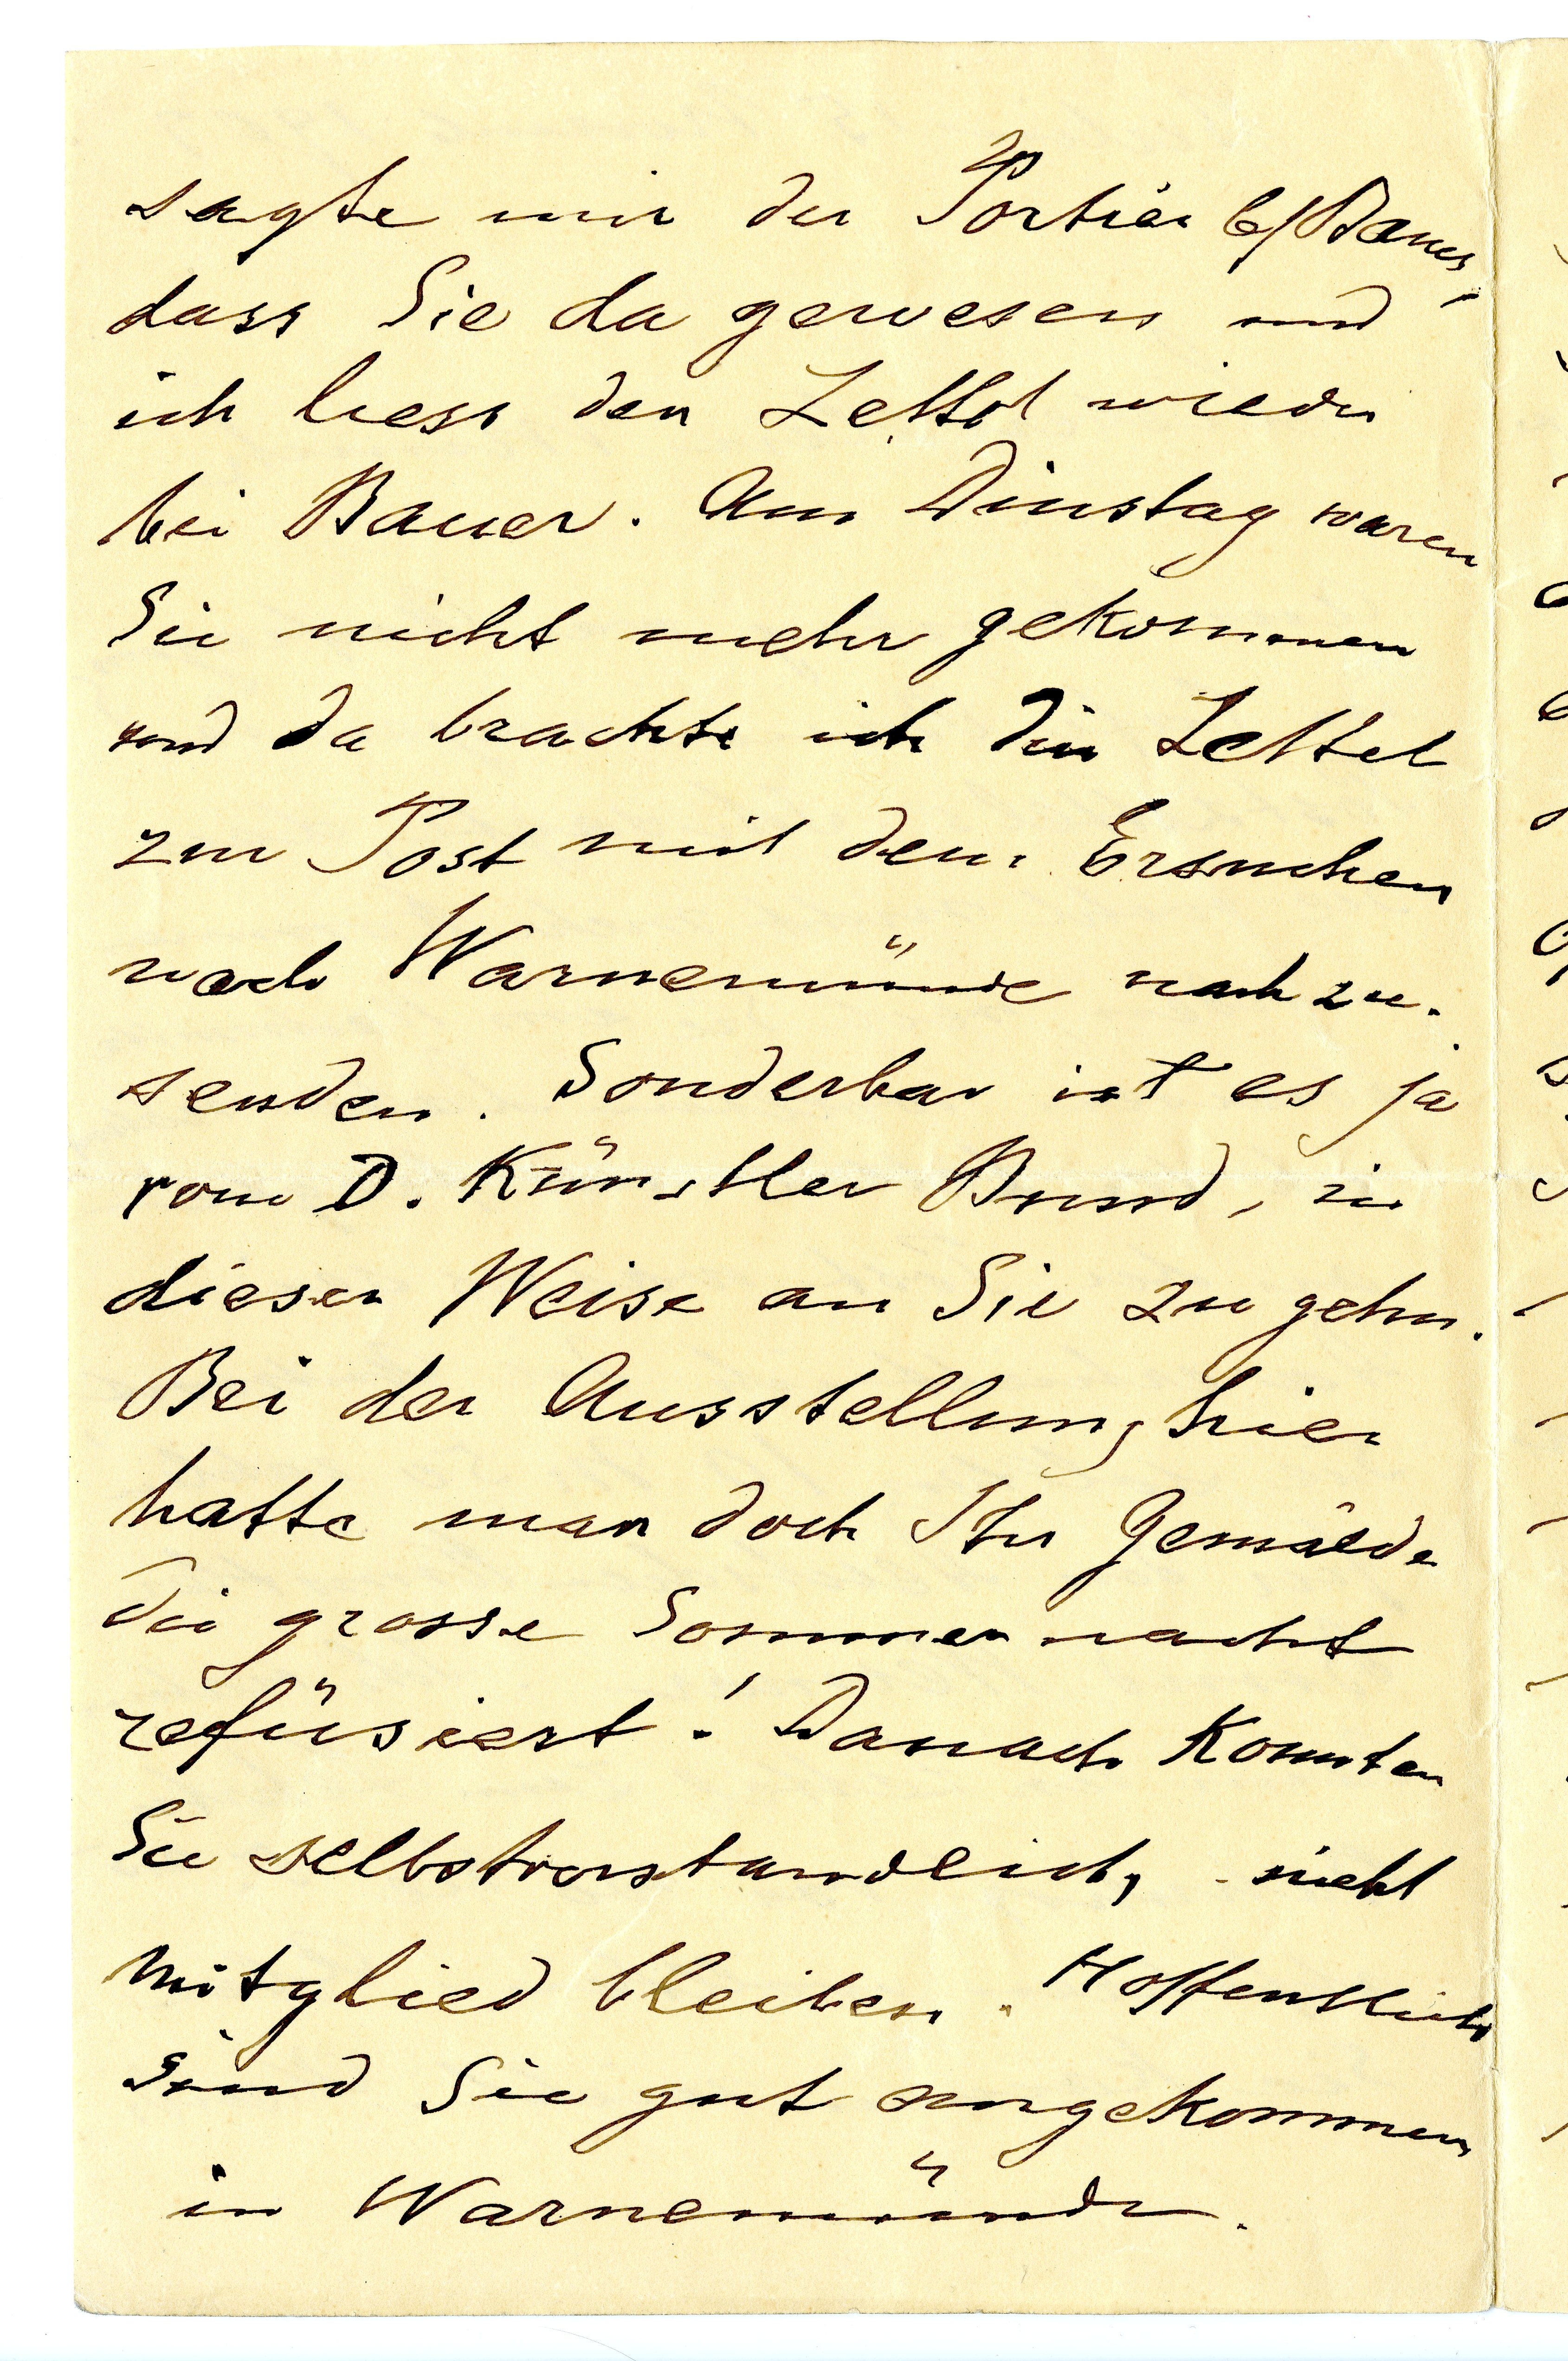 sagte mir der Portier b/Bauer,
dass Sie da gewesen und
ich liess den Zettel wieder
bei Bauer. Am Dinstag waren
Sie nicht mehr gekommen
und da brachte ich die Zettel
zur Post mit dem Ersuchen
nach Warnemünde nach zu-
senden. Sonderbar ist es ja
vom D. Künstler Bund, in
dieser Weise an Sie zu gehn.
Bei der Ausstellung hier
hatte man doch Ihr Gemälde
die grosse Sommernacht
refüsiert! Danach konnten
Sie selbstverstandlich, nicht
Mitglied bleiben. Hoffentlich
sind Sie gut angekommen
in Warnemünde.